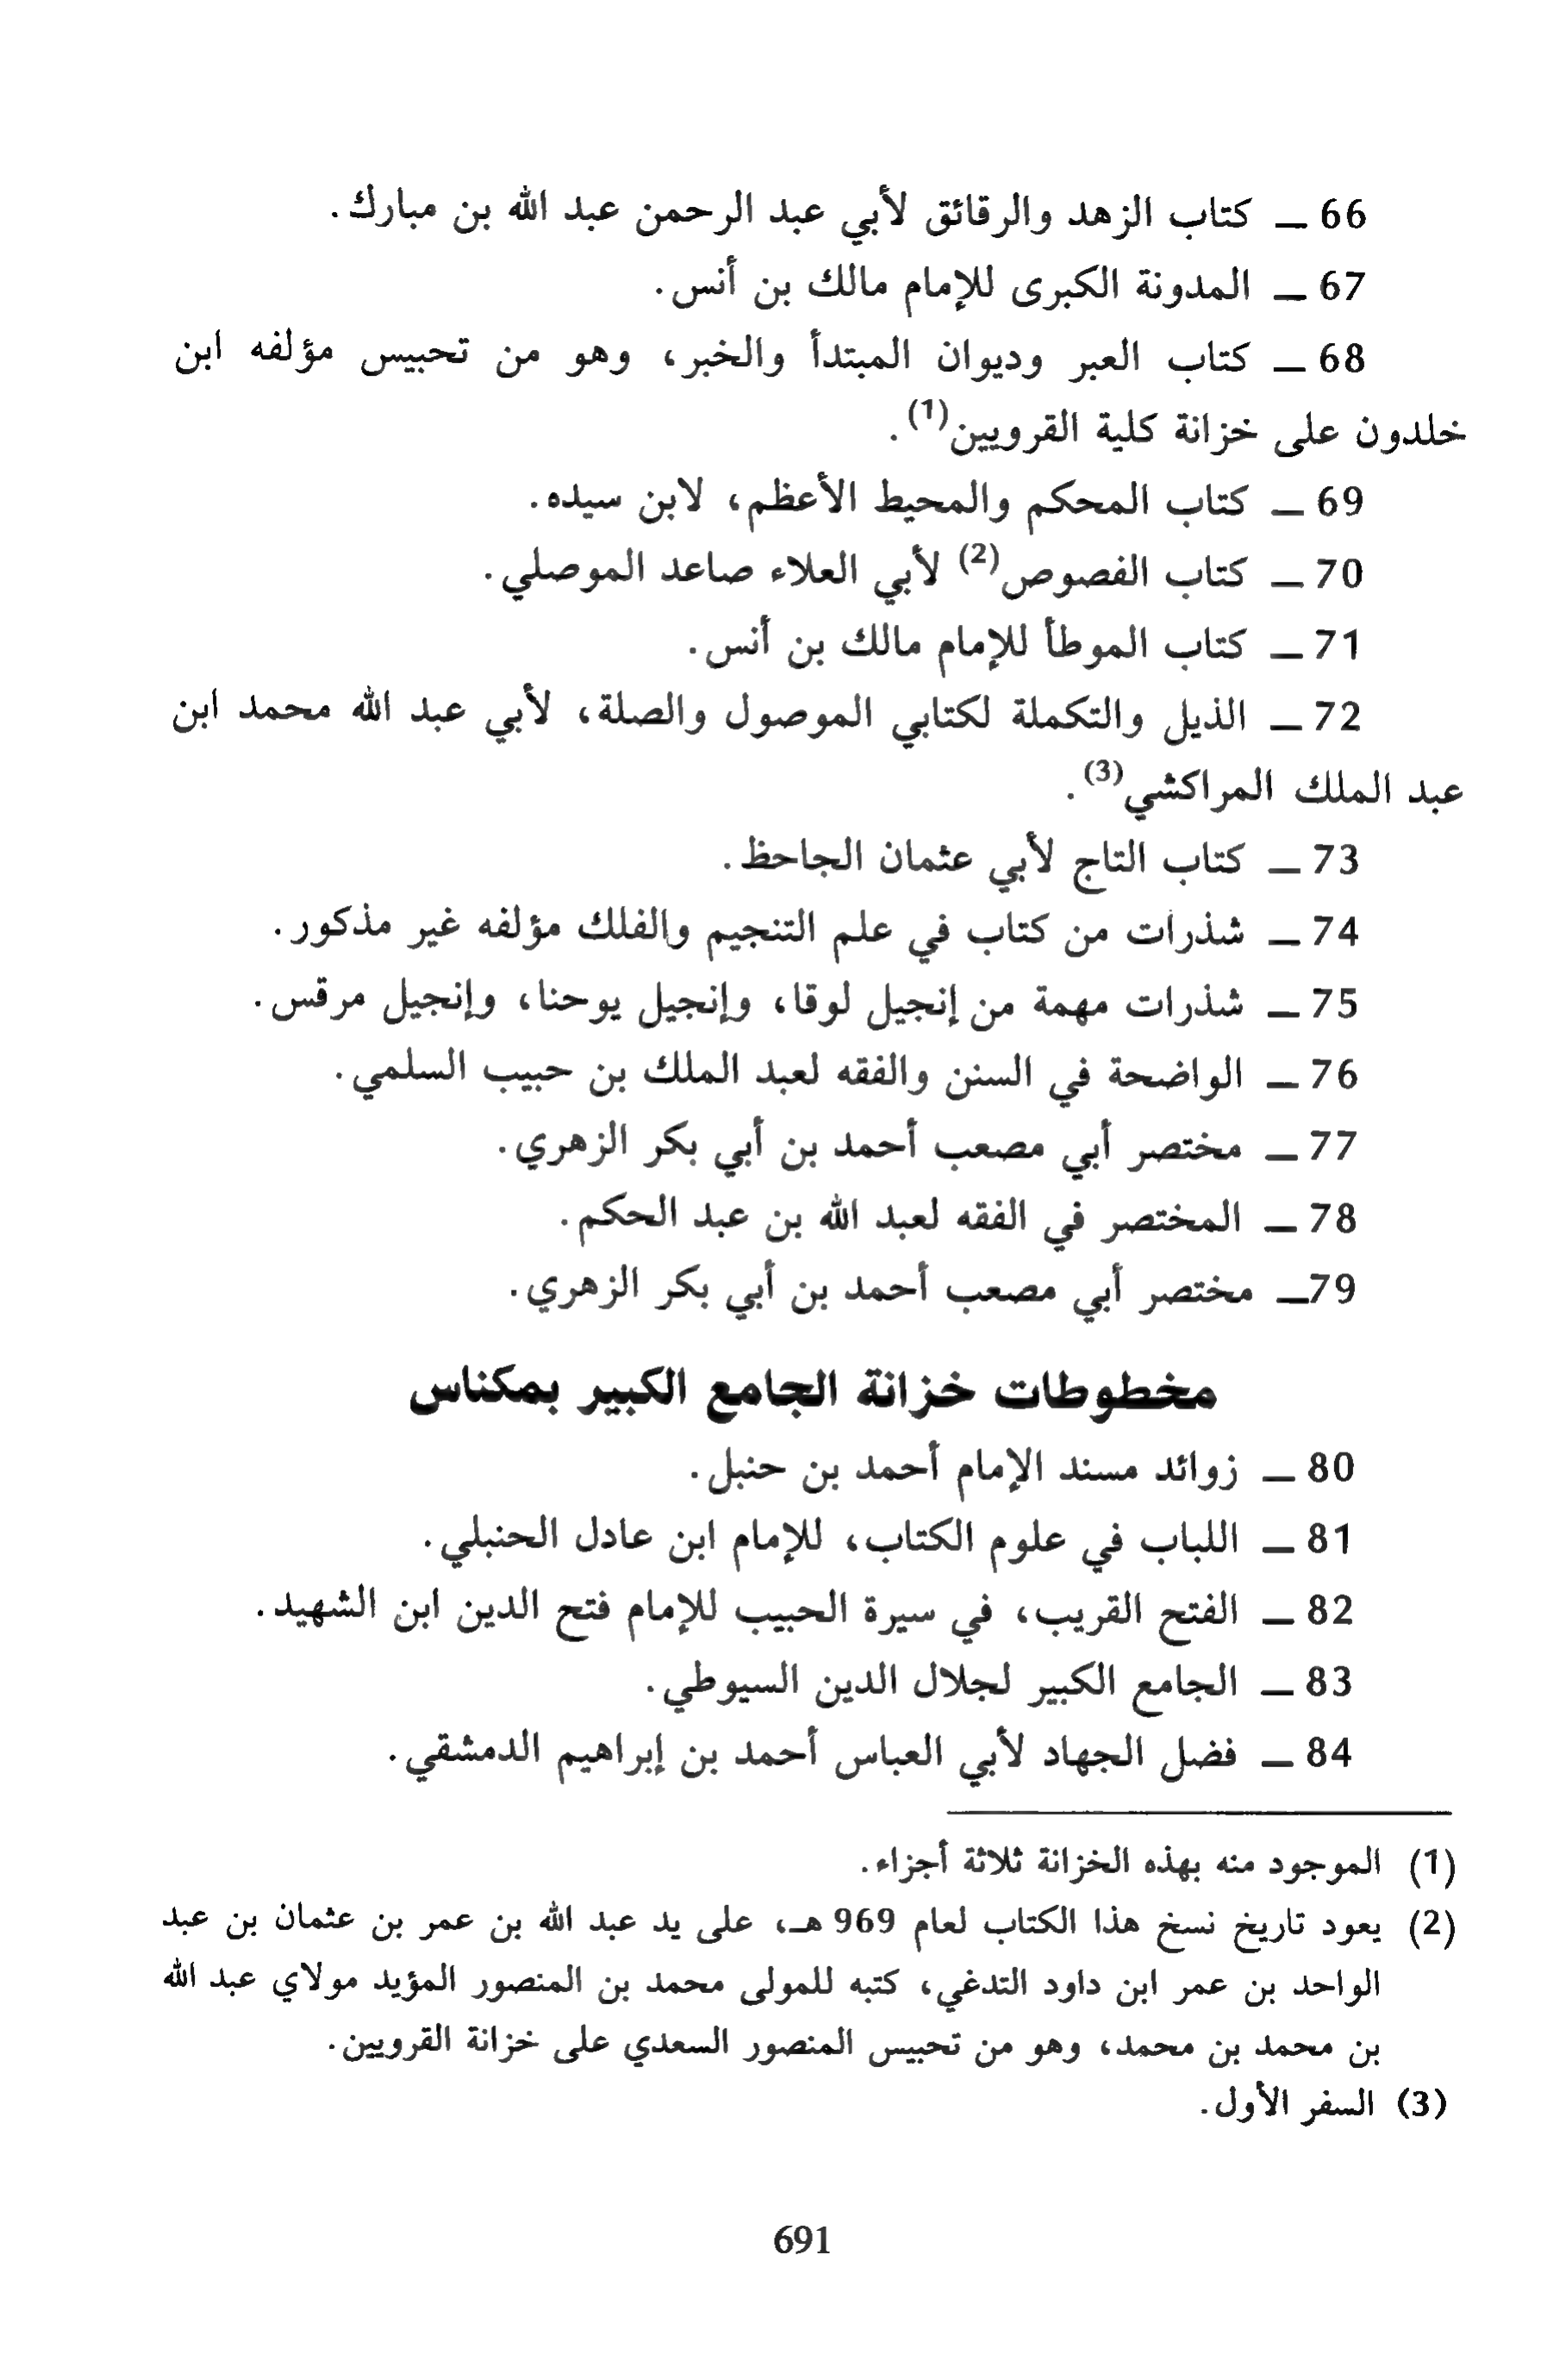 66 ـ كتاب الزهد والرقائق لأبي عبد الرحمن عبد الله بن مبارك.
67 ـ المدونة الكبرى للإمام مالك بن أنس.
68 ـ كتاب العبر وديوان المبتدأ والخبر، وهو من تحبيس مؤلفه ابن
خلدون على خزانة كلية القرويين(1).
69 ـ كتاب المحكم والمحيط الأعظم، لابن سيده.
70 ـ كتاب الفصوص(2) لأبي العلاء صاعد الموصلي.
71 ـ كتاب الموطأ للإمام مالك بن أنس.
72 ـ الذيل والتكملة لكتابي الموصول والصلة، لأبي عبد الله محمد ابن
عبد الملك المراكشي(3).
73 ـ كتاب التاج لأبي عثمان الجاحظ.
74 ـ شذرات من كتاب في علم التنجيم والفلك مؤلفه غير مذكور.
75 ـ شذرات مهمة من إنجيل لوقا، وإنجيل يوحنا، وإنجيل مرقس.
76 ـ الواضحة في السنن والفقه لعبد الملك بن حبيب السلمي.
77 ـ مختصر أبي مصعب أحمد بن أبي بكر الزهري.
78 ـ المختصر في الفقه لعبد الله بن عبد الحكم.
79ـ مختصر أبي مصعب أحمد بن أبي بكر الزهري.
مخطوطات خزانة الجامع الكبير بمكناس
80 ـ زوائد مسند الإمام أحمد بن حنبل.
81 ـ اللباب في علوم الكتاب، للإمام ابن عادل الحنبلي.
82 ـ الفتح القريب، في سيرة الحبيب للإمام فتح الدين ابن الشهيد.
83 ـ الجامع الكبير لجلال الدين السيوطي.
84 ـ فضل الجهاد لأبي العباس أحمد بن إبراهيم الدمشقي.
(1) الموجود منه بهذه الخزانة ثلاثة أجزاء.
(2) يعود تاريخ نسخ هذا الكتاب لعام 969 هـ، على يد عبد الله بن عمر بن عثمان بن عبد
الواحد بن عمر ابن داود التدغي، كتبه للمولى محمد بن المنصور المؤيد مولاي عبد الله
بن محمد بن محمد، وهو من تحبيس المنصور السعدي على خزانة القرويين.
(3) السفر الأول.
691